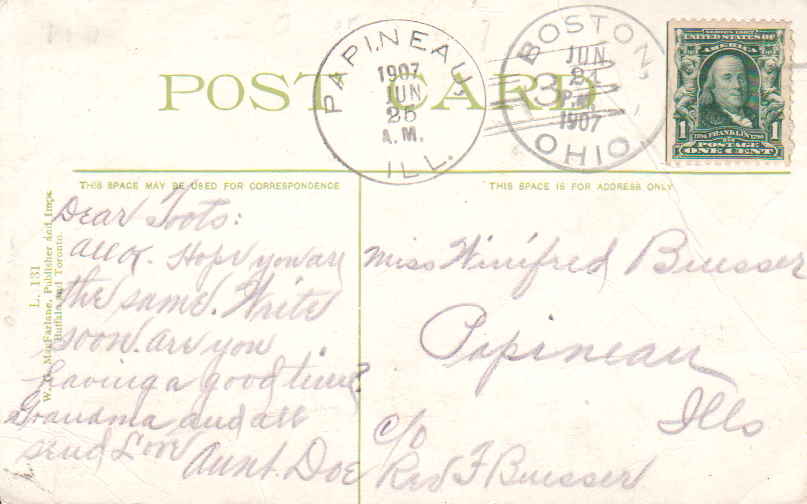 POST CARD
PAPINEAU, ILL.
1907
JUN
25
A.M.
BOSTON, OHIO
JUN
24
3 P.M.
1907
SERIES 1902
UNITED STATES OF
AMERICA
1
1706 FRANKLIN 1790
POSTAGE
ONE CENT
THIS SPACE MAY BE USED FOR CORRESPONDENCE
THIS SPACE IS FOR ADDRESS ONLY
L. 131
W. G. MacFarlane, Publisher and Imps.
Buffalo and Toronto.
Dear Toots:
all ok. Hope you are
the same. Write
soon. are you
having a good time?
Grandma and all
send Love
Aunt. Doe
Miss Winifred Buesser
Papineau
Ills
c/o
Rev F Buesser